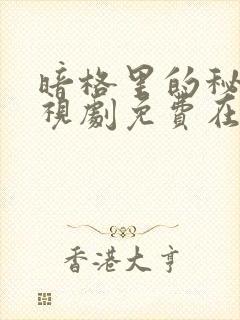 暗格里的秘
視劇免費在
香港大亨